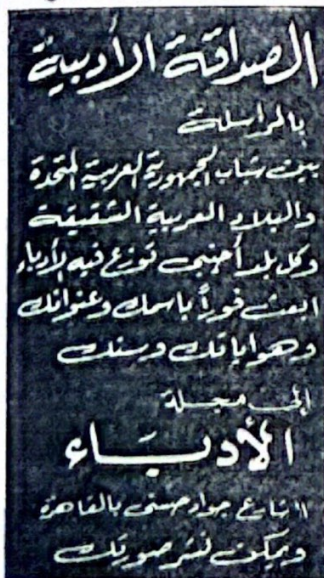 الصداقة الأدبية
بالمراسلة
بين شباب الجمهورية العربية المتحدة
والبلاد العربية الشقيقة
وكل بلد أجنبى توزع فيه الأدباء
ابعث فوراً باسمك وعنوانك
وهواياتك وسنك
إلى مجلة
الأدبــاء
١١ شارع جواد حسنى بالقاهرة
ويمكن نشر صورتك